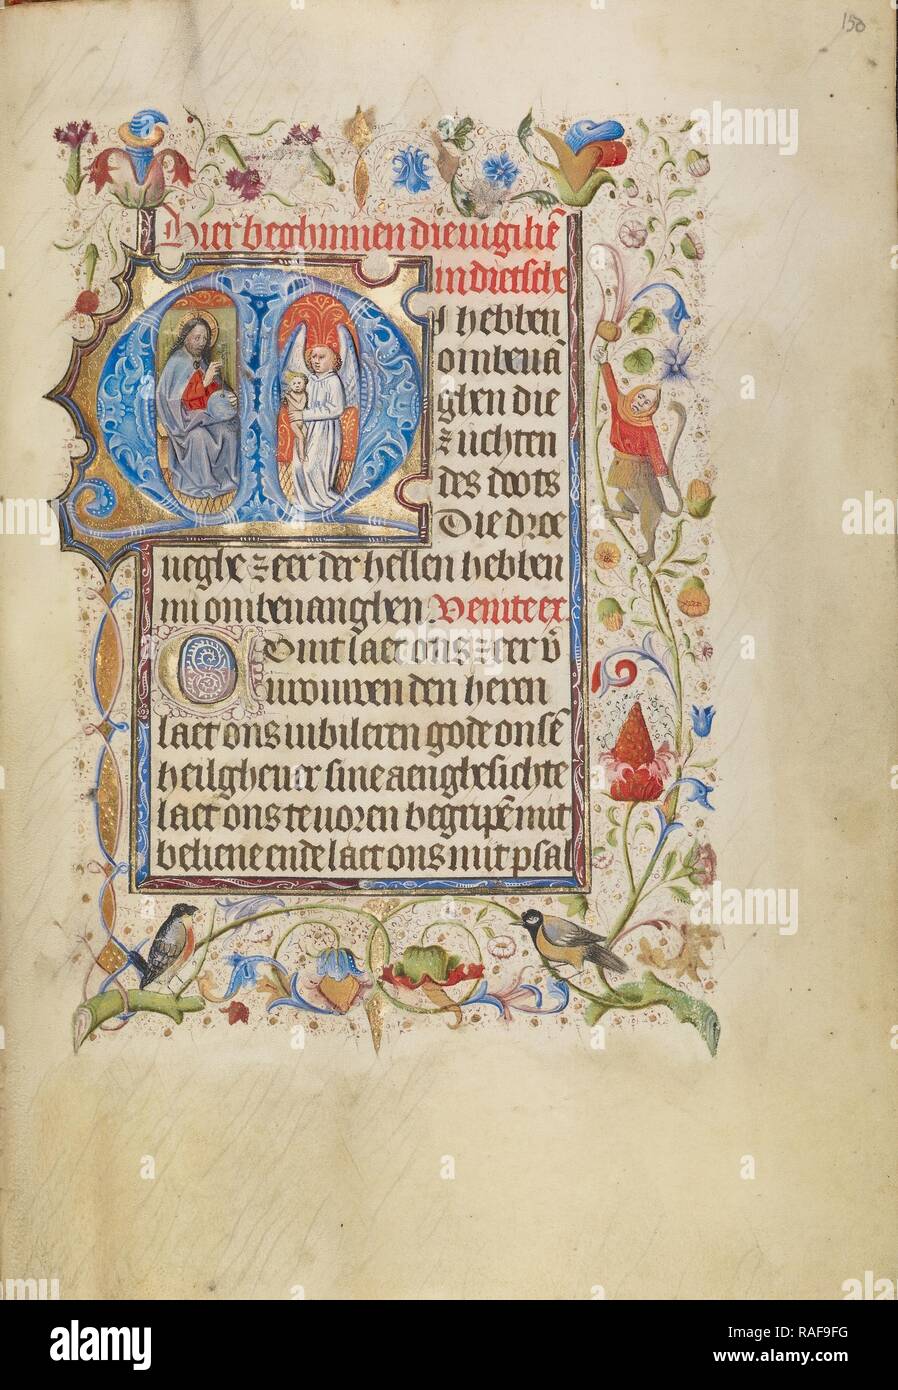 150
Hier beghinnen die vigilie͞
in dietsche
MI hebben
ombeua͞
ghen die
zuchten
des doots
Die droe
neghe zeer der hellen hebben
mi ombeuanghen. Venite ex.
Comt laet ons zeer v͞
urouwen den heren
laet ons iubileren gode onse͞
heilgheuer sine aenghesichte
laet ons te uoren begripe͞ mit
beliene ende laet ons mit psal
alamy
Image ID: RAF9FG
www.alamy.com